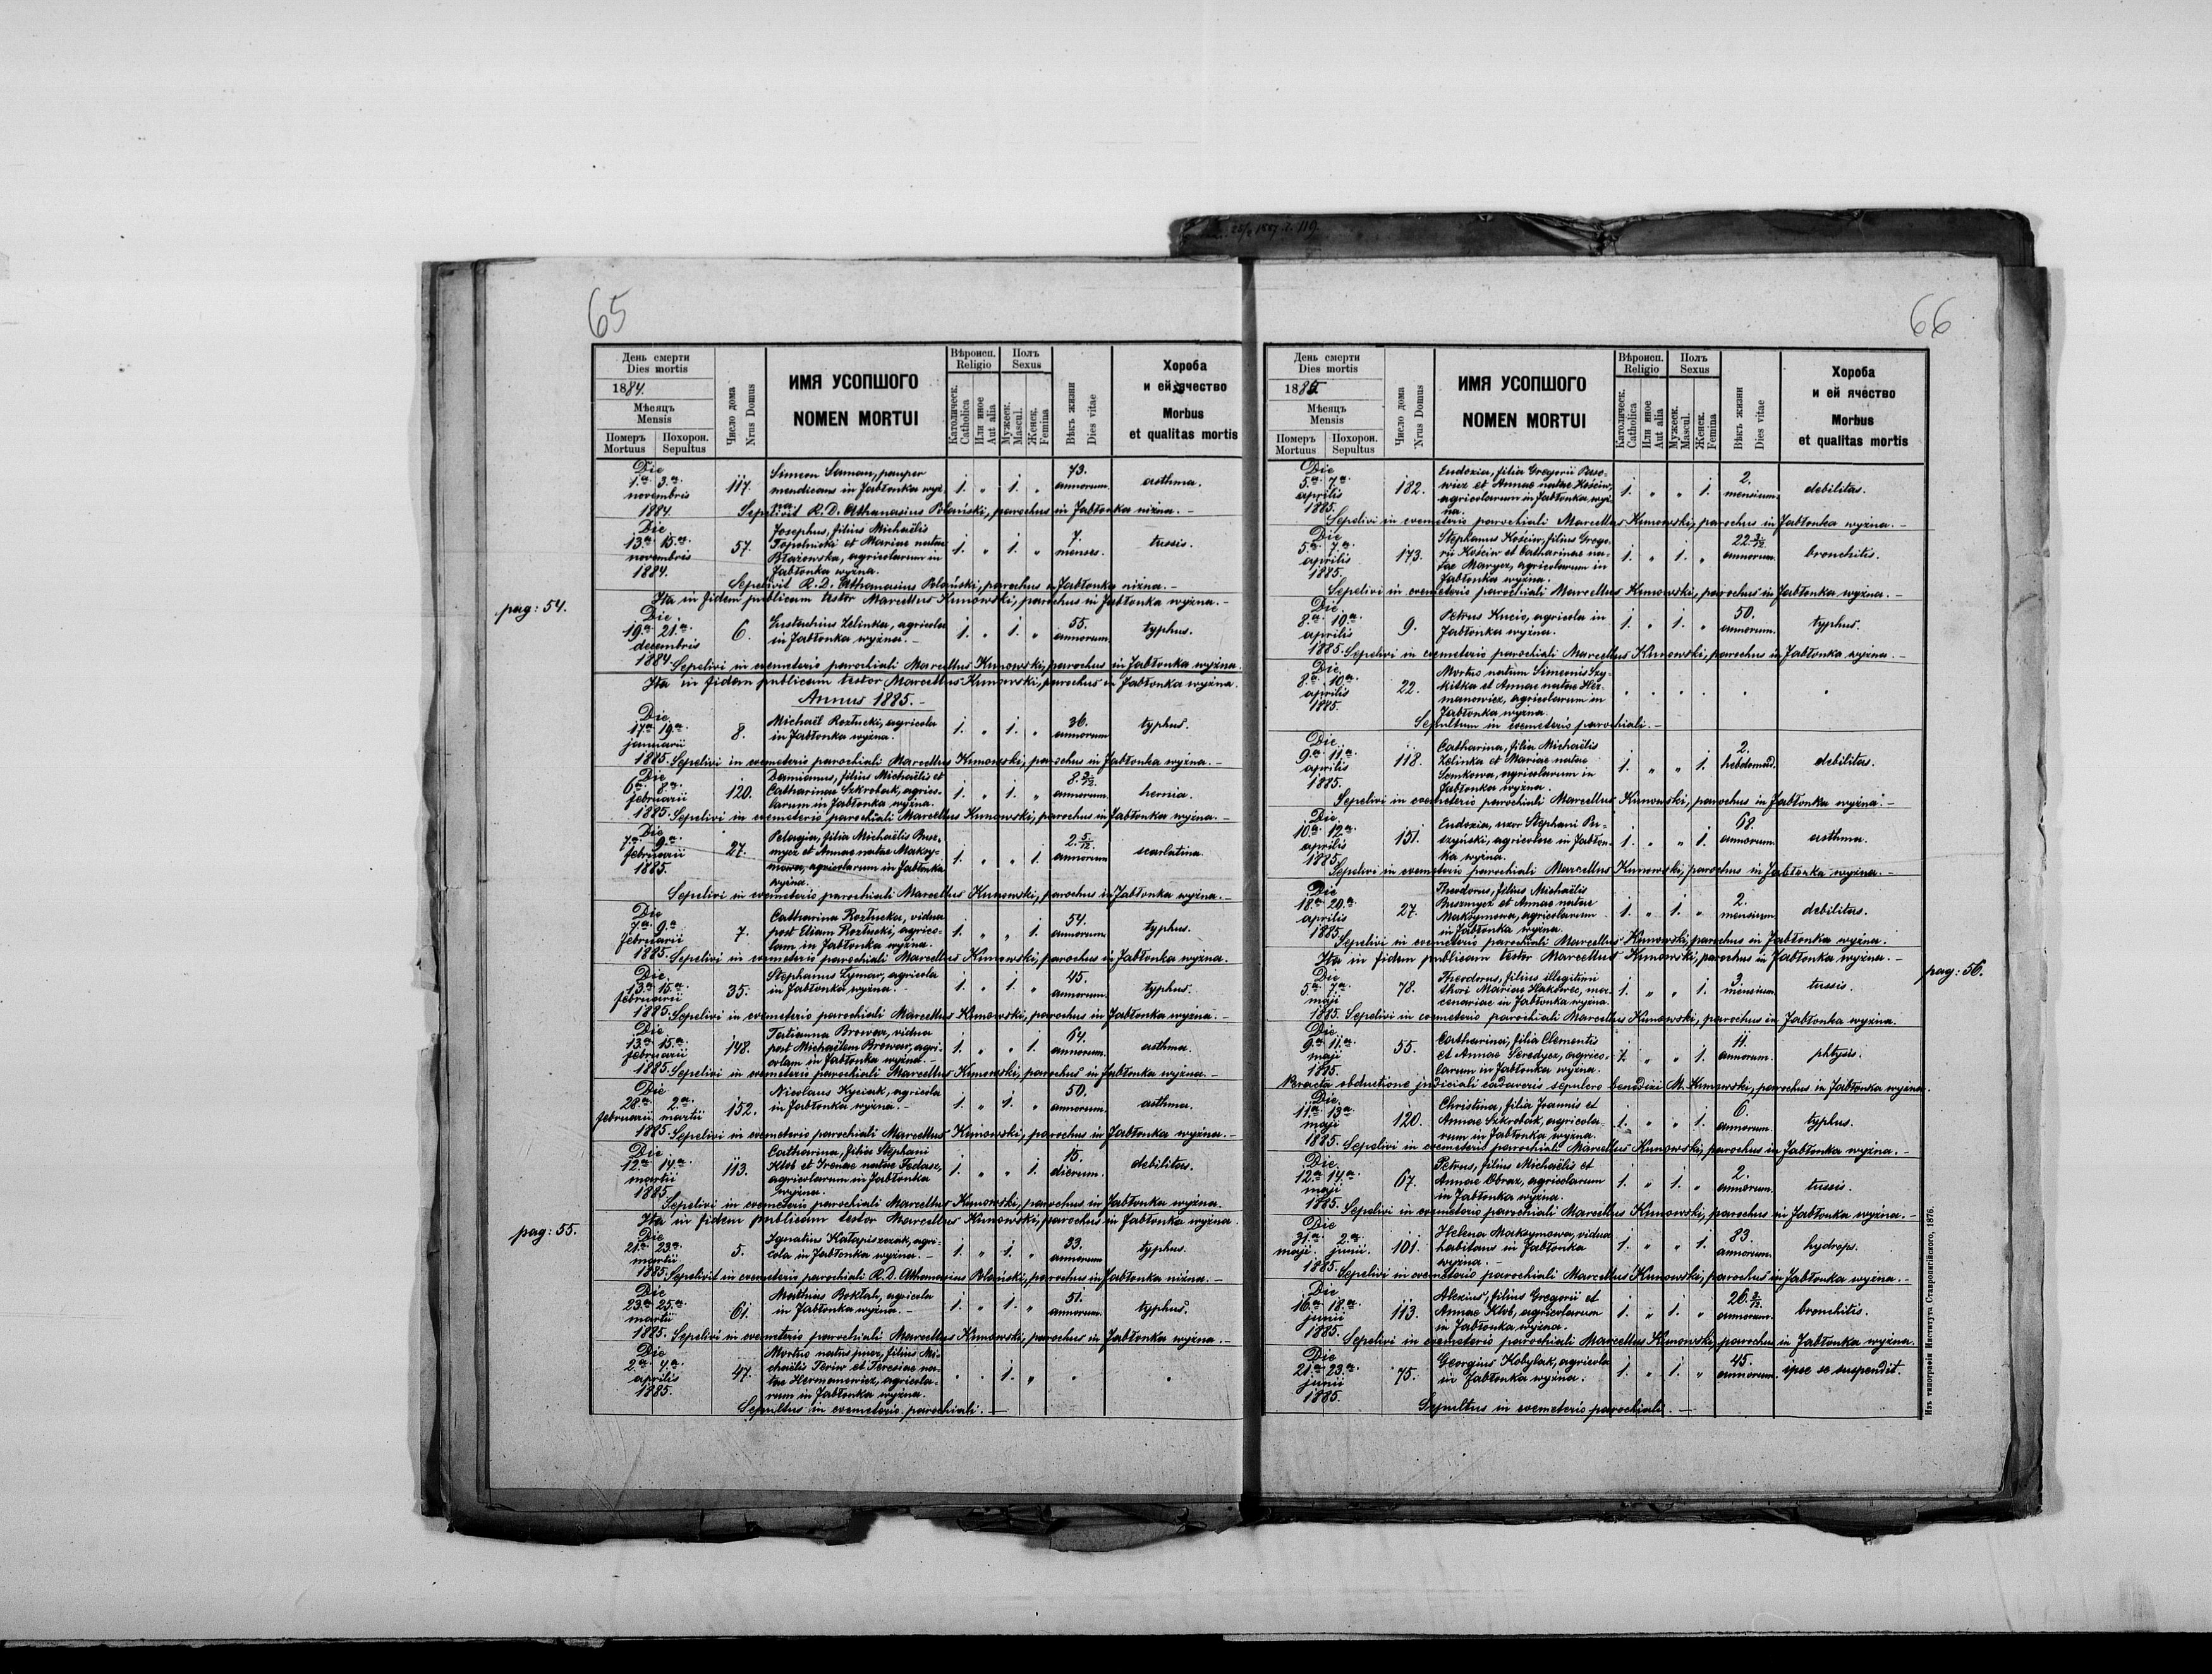 65
День смерти
Dies mortis
1884.
Мѣсяцъ
Mensis
Померъ
Mortuus
Похорон.
Sepultus
Число дома
Nrus Domus
ИМЯ УСОПШОГО
NOMEN MORTUI
Вѣроисп.
Religio
Католическ.
Catholica
Или иное
Aut alia
Полъ
Sexus
Мужеск.
Mascul.
Женск.
Femina
Вѣкъ жизни
Dies vitae
Хороба
и ей ячество
Morbus
et qualitas mortis
Die 1.a 3.a novembris 1884. 117. Simeon Saman, pauper mendicans in Jabłonka wyżna. 1. " 1. " 73. annorum. asthma.
Sepelivit R. D. Athanasius Polański, parochus in Jabłonka niżna. -
Die 13.a 15.a novembris 1884. 57. Josephus, filius Michaëlis Topolnicki et Mariae natae Błażowska, agricolarum in Jabłonka wyżna. 1. " 1. " 7. menses. tussis.
Sepelivit R. D. Athanasius Polański, parochus in Jabłonka niżna. -
Ita in fidem publicam testor Marcellus Kunowski, parochus in Jabłonka wyżna. -
pag: 54.
Die 19.a 21.a decembris 1884. 6. Eustachius Zelinka, agricola in Jabłonka wyżna. - 1. " 1. " 55. annorum. typhus.
Sepelivi in coemeterio parochiali Marcellus Kunowski, parochus in Jabłonka wyżna.
Ita in fidem publicam testor Marcellus Kunowski, parochus in Jabłonka wyżna.
Annus 1885. -
Die 17.a 19.a januarii 1885. 8. Michaël Rozłucki, agricola in Jabłonka wyżna. 1. " 1. " 36. annorum typhus.
Sepelivi in coemeterio parochiali Marcellus Kunowski, parochus in Jabłonka wyżna. -
Die 6.a 8.a februarii 1885. 120. Damianus, filius Michaëlis et Catharinae Szkrobak, agricolarum in Jabłonka wyżna. 1. " 1. " 8. 2/12. annorum. hernia.
Sepelivi in coemeterio parochiali Marcellus Kunowski, parochus in Jabłonka wyżna. -
Die 7.a 9.a februarii 1885. 27. Pelagia, filia Michaëlis Buszmycz et Annae natae Maksymowa, agricolarum in Jabłonka wyżna. 1. " " 1. 2. 5/12. annorum scarlatina.
Sepelivi in coemeterio parochiali Marcellus Kunowski, parochus in Jabłonka wyżna. -
Die 7.a 9.a februarii 1885. 7. Catharina Rozłucka, vidua post Eliam Rozłucki, agricolam in Jabłonka wyżna. 1. " " 1. 54. annorum. typhus.
Sepelivi in coemeterio parochiali Marcellus Kunowski, parochus in Jabłonka wyżna.
Die 13.a 15.a februarii 1885. 35. Stephanus Łymar, agricola in Jabłonka wyżna. 1. " 1. " 45. annorum. typhus.
Sepelivi in coemeterio parochiali Marcellus Kunowski, parochus in Jabłonka wyżna. -
Die 13.a 15.a februarii 1885. 148. Tatianna Browar, vidua post Michaëlem Browar, agricolam in Jabłonka wyżna. - 1. " " 1. 64. annorum. asthma.
Sepelivi in coemeterio parochiali Marcellus Kunowski, parochus in Jabłonka wyżna. -
Die 28.a februarii 2.a martii 1885. 152. Nicolaus Kyciak, agricola in Jabłonka wyżna. - 1. " 1. " 50. annorum. asthma.
Sepelivi in coemeterio parochiali Marcellus Kunowski, parochus in Jabłonka wyżna. -
Die 12.a 14.a martii 1885. 113. Catharina, filia Stephani Kłob et Irenae natae Fedasz, agricolarum in Jabłonka wyżna. 1. " " 1. 15. dierum. debilitas.
Sepelivi in coemeterio parochiali Marcellus Kunowski, parochus in Jabłonka wyżna.
Ita in fidem publicam testor Marcellus Kunowski, parochus in Jabłonka wyżna.
pag: 55.
Die 21.a 23.a martii 1885. 5. Ignatius Katapiszczak, agricola in Jabłonka wyżna. - 1. " 1. " 33. annorum typhus.
Sepelivit in coemeterio parochiali R. D. Athanasius Polański, parochus in Jabłonka niżna. -
Die 23.a 25.a martii 1885. 61. Mathias Boktah, agricola in Jabłonka wyżna. - 1. " 1. " 51. annorum. typhus.
Sepelivi in coemeterio parochiali Marcellus Kunowski, parochus in Jabłonka wyżna. -
Die 2.a 4.a aprilis 1885. 47. Mortuo natus puer, filius Michaëlis Teriw et Teresiae natae Hermanowicz, agricolarum in Jabłonka wyżna. 1. "
Sepultus in coemeterio parochiali. -
66
День смерти
Dies mortis
1885
Мѣсяцъ
Mensis
Померъ
Mortuus
Похорон.
Sepultus
Число дома
Nrus Domus
ИМЯ УСОПШОГО
NOMEN MORTUI
Вѣроисп.
Religio
Католическ.
Catholica
Или иное
Aut alia
Полъ
Sexus
Мужеск.
Mascul.
Женск.
Femina
Вѣкъ жизни
Dies vitae
Хороба
и ей ячество
Morbus
et qualitas mortis
Die 5.a 7.a aprilis 1885. 182. Eudoxia, filia Gregorii et Annae natae Kościw, agricolarum in Jabłonka wyżna. 1. " " 1. 2. mensium. debilitas.
Sepelivi in coemeterio parochiali Marcellus Kunowski, parochus in Jabłonka wyżna. -
Die 5.a 7.a aprilis 1885. 173. Stephanus Kościw, filius Gregorii Kościw et Catharinae natae Marycz, agricolarum in Jabłonka wyżna. 1. " 1. " 22 2/12 annorum. bronchitis.
Sepelivi in coemeterio parochiali Marcellus Kunowski, parochus in Jabłonka wyżna. -
Die 8.a 10.a aprilis 1885. 9. Petrus Kucio, agricola in Jabłonka wyżna. 1. " 1. " 50. annorum. typhus.
Sepelivi in coemeterio parochiali Marcellus Kunowski, parochus in Jabłonka wyżna. -
Die 8.a 10.a aprilis 1885. 22. Mortuo natum Simeonis Szykitka et Annae natae Hermanowicz, agricolarum in Jabłonka wyżna.
Sepultum in coemeterio parochiali. -
Die 9.a 11.a aprilis 1885. 118. Catharina, filia Michaëlis Zelinka et Mariae natae Semkowa, agricolarum in Jabłonka wyżna. 1. " " 1. 2. hebdomad. debilitas.
Sepelivi in coemeterio parochiali Marcellus Kunowski, parochus in Jabłonka wyżna. -
Die 10.a 12.a aprilis 1885. 151. Eudoxia, uxor Stephani agricolae in Jabłonka wyżna. 1. " " 1. 68. annorum. asthma.
Sepelivi in coemeterio parochiali Marcellus Kunowski, parochus in Jabłonka wyżna. -
Die 18.a 20.a aprilis 1885. 27. Theodorus, filius Michaëlis Buszmycz et Annae natae Maksymowa, agricolarum in Jabłonka wyżna. 1. " 1. " 2. mensium. debilitas.
Sepelivi in coemeterio parochiali Marcellus Kunowski, parochus in Jabłonka wyżna.
Ita in fidem publicam testor Marcellus Kunowski, parochus in Jabłonka wyżna. -
pag: 56.
Die 5.a 7.a maji 1885. 78. Theodorus, filius illegitimi thori Mariae Hakowec, mercenariae in Jabłonka wyżna. 1. " " 1. 3. mensium. tussis.
Sepelivi in coemeterio parochiali Marcellus Kunowski, parochus in Jabłonka wyżna.
Die 9.a 11.a maji 1885. 55. Catharina, filia Clementis et Annae Seredycz, agricolarum in Jabłonka wyżna. 1. " " 1. 11. annorum. phtysis.
Peracta obductione judiciali cadaveris sepulcro benedixi M. Kunowski, parochus in Jabłonka wyżna.
Die 11.a 13.a maji 1885. 120. Christina, filia Joannis et Annae Szkrobak, agricolarum in Jabłonka wyżna. 1. " " 1. 6. annorum. typhus.
Sepelivi in coemeterio parochiali Marcellus Kunowski, parochus in Jabłonka wyżna. -
Die 12.a 14.a maji 1885. 67. Petrus, filius Michaëlis et Annae Obraz, agricolarum in Jabłonka wyżna. 1. " 1. " 2. annorum. tussis.
Sepelivi in coemeterio parochiali Marcellus Kunowski, parochus in Jabłonka wyżna. -
Die 31.a maji 2.a junii 1885. 101. Helena Maksymowa, vidua habitans in Jabłonka wyżna. - 1. " " 1. 83. annorum. hydrops.
Sepelivi in coemeterio parochiali Marcellus Kunowski, parochus in Jabłonka wyżna. -
Die 16.a 18.a junii 1885. 113. Alexius, filius Gregorii et Annae Kłob, agricolarum in Jabłonka wyżna. 1. " 1. " 26. 3/12. annorum. bronchitis.
Sepelivi in coemeterio parochiali Marcellus Kunowski, parochus in Jabłonka wyżna.
Die 21.a 23.a junii 1885. 75. Georgius Kobylak, agricola in Jabłonka wyżna. 1. " 1. " 45. annorum. ipse se suspendit.
Sepultus in coemeterio parochiali. -
Изъ типографіи Института Ставропигійского, 1876.